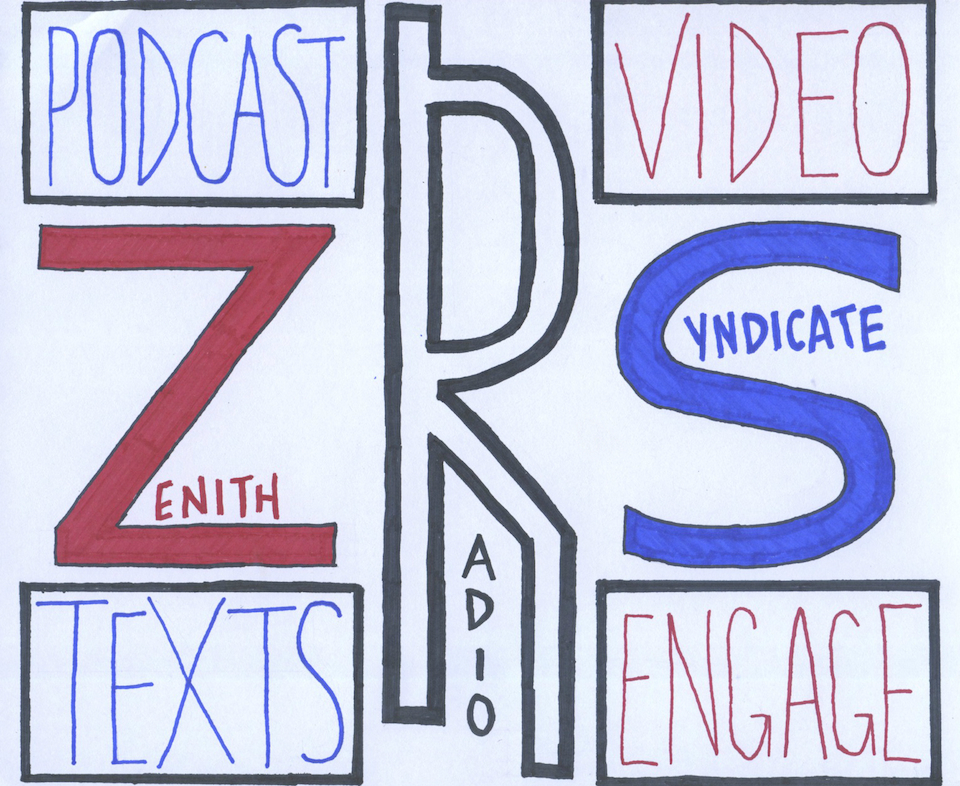 PODCAST
VIDEO
ZENITH
RADIO
SYNDICATE
TEXTS
ENGAGE